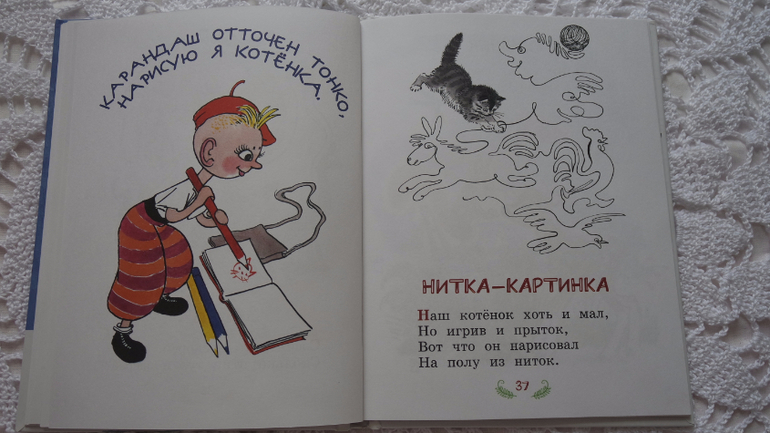 КАРАНДАШ ОТТОЧЕН ТОНКО,
НАРИСУЮ Я КОТЁНКА.
НИТКА–КАРТИНКА
Наш котёнок хоть и мал,
Но игрив и прыток,
Вот что он нарисовал
На полу из ниток.
37